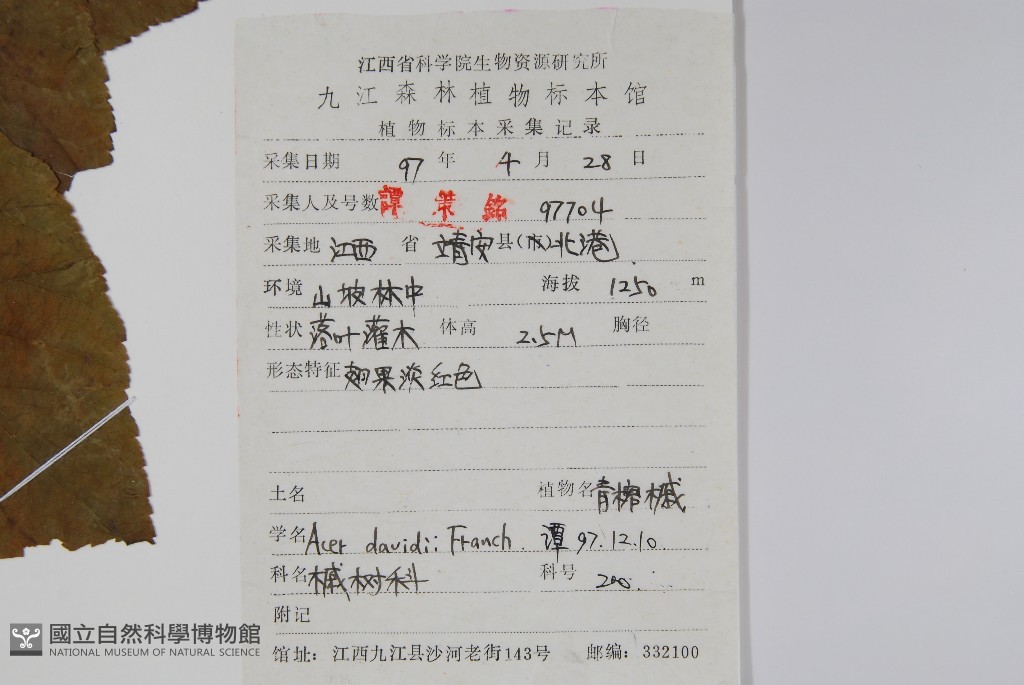 江西省科学院生物资源研究所
九江森林植物标本馆
植物标本采集记录
采集日期 97年 4月 28日
采集人及号数 譚策銘 97704
采集地 江西 省 靖安 县(市)北港
环境 山坡林中 海拔 1250 m
性状 落叶灌木 体高 2.5M 胸径
形态特征 翅果淡红色
土名 植物名 青榨槭
学名 Acer davidii Franch. 谭 97.12.10.
科名 槭树科 科号 200.
附记
馆址：江西九江县沙河老街143号 邮编：332100
國立自然科學博物館
NATIONAL MUSEUM OF NATURAL SCIENCE